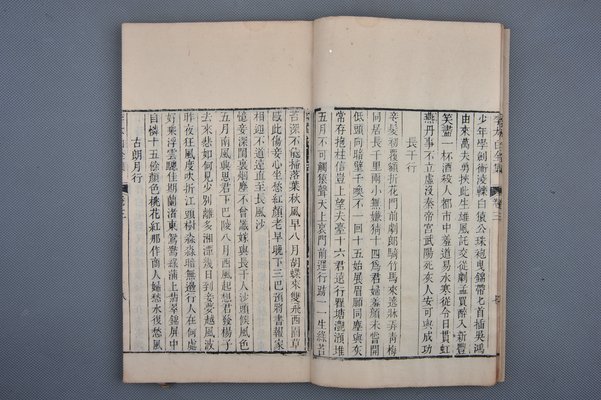 李太白全集 卷三
少年學劍術凌轢白猿公珠袍曳錦帶匕首插吳鴻
由來萬夫勇挾此生雄風託交從劇孟買醉入新豐
笑盡一杯酒殺人都市中羞道易水寒從令日貫虹
燕丹事不立虛沒秦帝宮武陽死灰人安可與成功
長干行
妾髮初覆額折花門前劇郎騎竹馬來遶牀弄青梅
同居長干里兩小無嫌猜十四爲君婦羞顏未嘗開
低頭向暗壁千喚不一回十五始展眉願同塵與灰
常存抱柱信豈上望夫臺十六君遠行瞿塘灩澦堆
五月不可觸猿聲天上哀門前遲行跡一一生綠苔
苔深不能掃落葉秋風早八月胡蝶來雙飛西園草
感此傷妾心坐愁紅顏老早晚下三巴預將書報家
相迎不道遠直至長風沙
憶妾深閨裏煙塵不曾識嫁與長干人沙頭候風色
五月南風興思君下巴陵八月西風起想君發楊子
去來悲如何見少別離多湘潭幾日到妾夢越風波
昨夜狂風度吹折江頭樹淼淼暗無邊行人在何處
好乘浮雲驄佳期蘭渚東鴛鴦綠蒲上翡翠錦屏中
自憐十五餘顏色桃花紅那作商人婦愁水復愁風
古朗月行